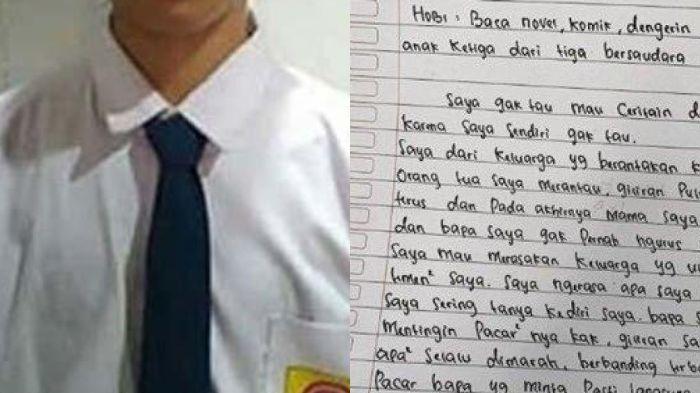 HOBI : Baca novel, komik, dengerin
anak ketiga dari tiga bersaudara
Saya gak tau mau Ceritain d
karma saya sendiri gak tau.
Saya dari keluarga yg berantakan k
Orang tua saya merantau. giliran Pul
terus dan Pada akhirnya mama saya
dan bapa saya gak Pernah ngurus
Saya mau merasakan keluarga yg u
temen² saya. saya ngerasa apa saya
Saya sering tanya kediri saya. bapa s
mentingin Pacar² nya kak, giliran sa
apa² selalu dimarah, berbanding terba
Pacar bapa yg minta Pasti langsung